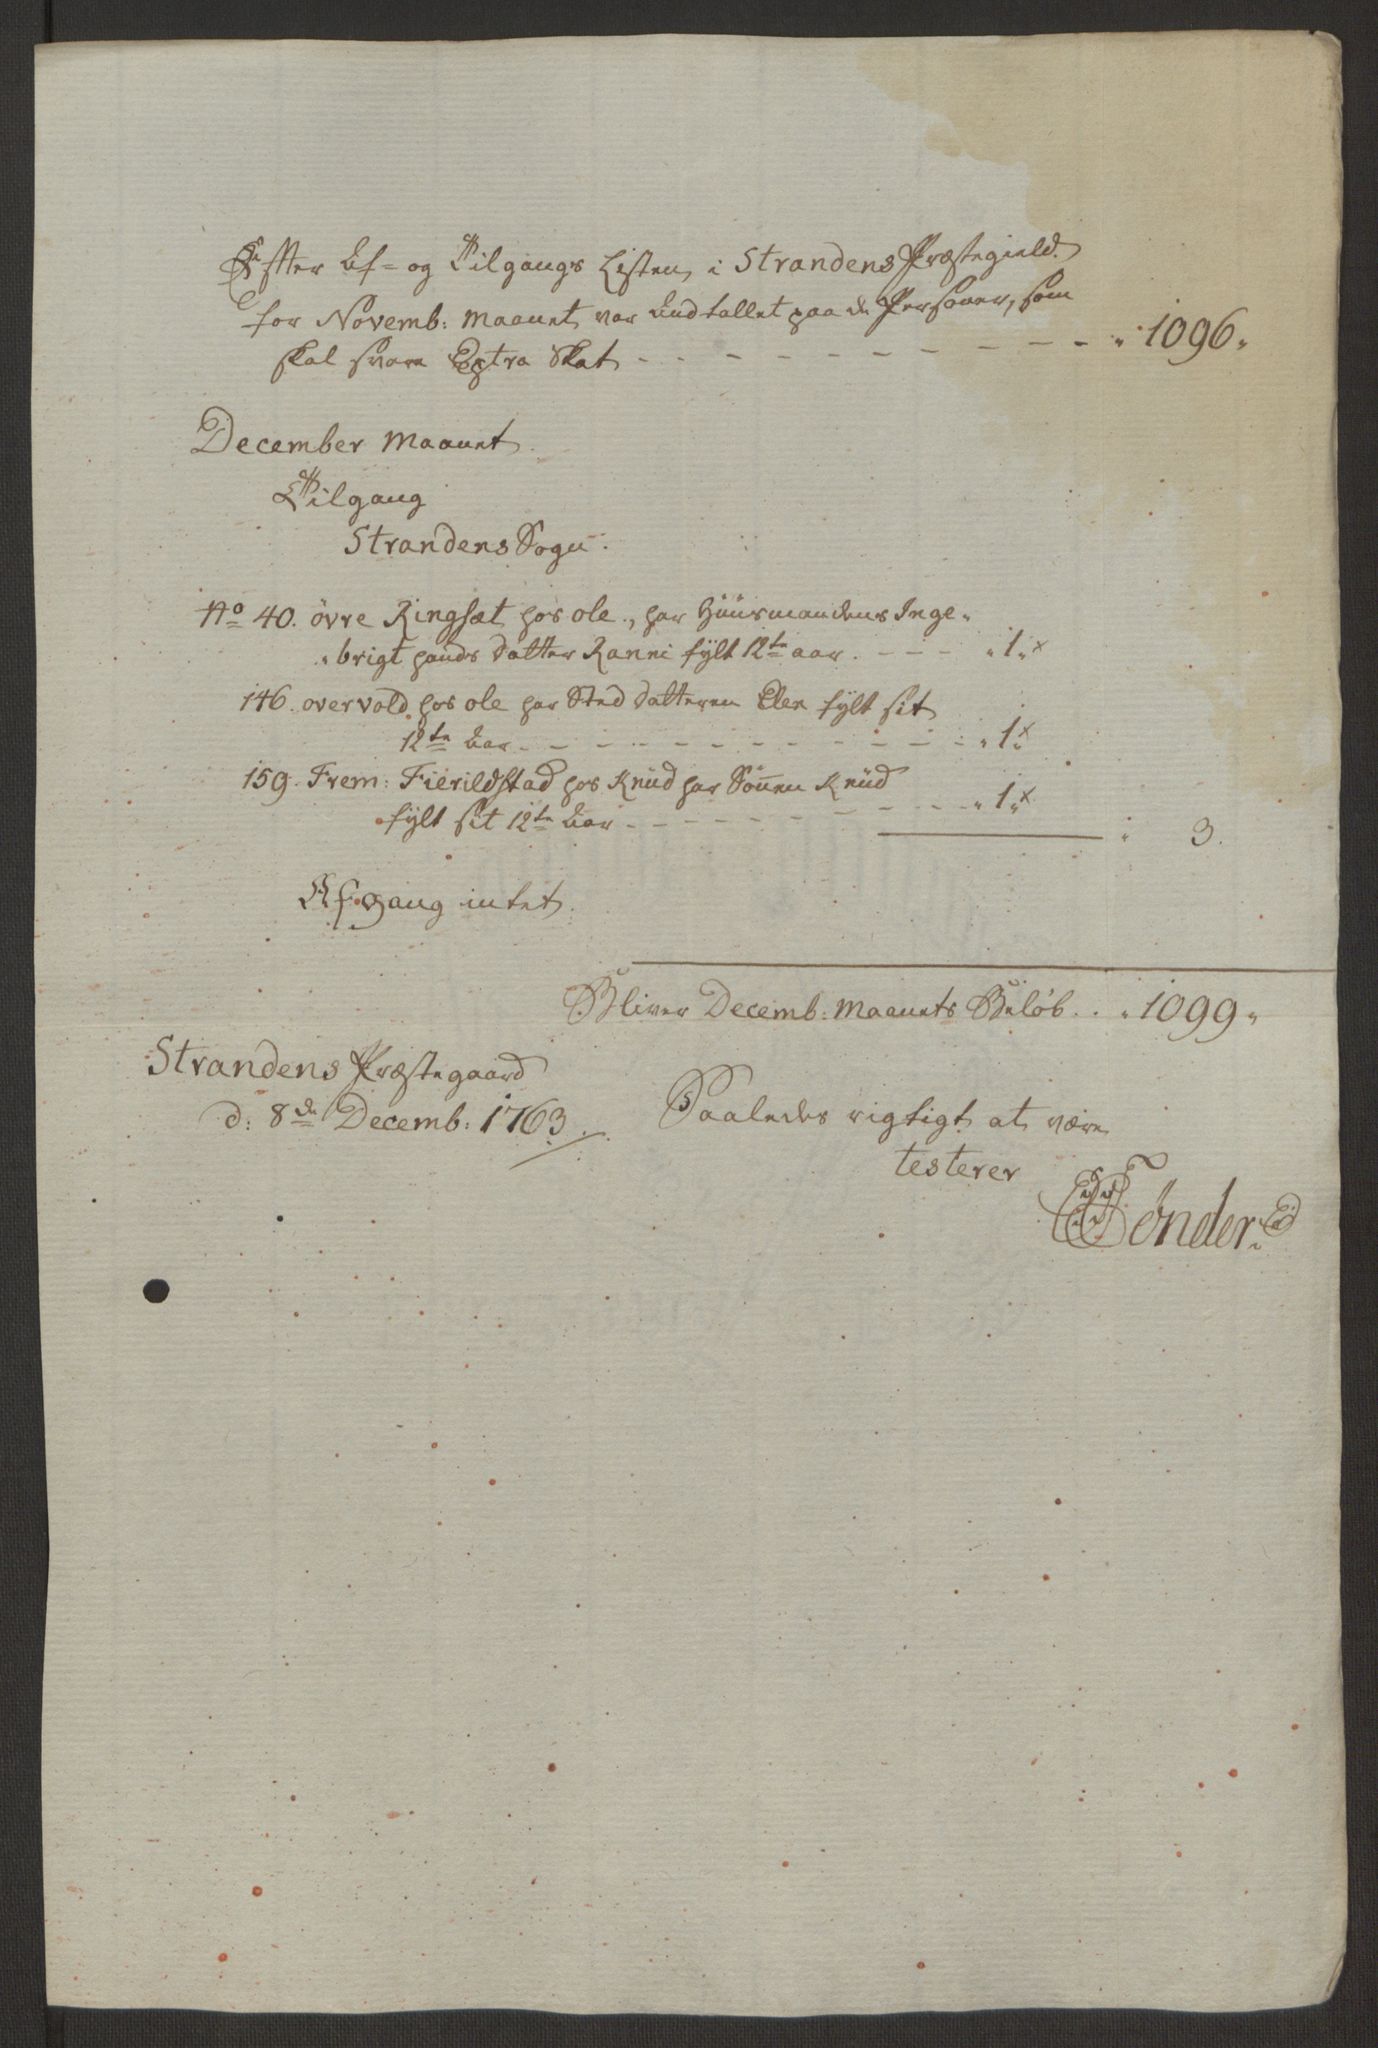 Effter Af= og Tilgangs Listen i Strandens Præstegield
for Novemb: Maanet var Endtallet paa de Personer, som
skal svare Extra Skat - - - - - - - - - - - - „ 1096„
December Maanet
Tilgang
Strandens Sogn.
No 40. övre Ringsæt hos ole, har Huusmandens Inge„
„brigt hands datter Ranni fylt 12te aar. - - - „1„ x
146. overvold hos ole har Sted datteren Elen fylt sit
12te Aar - - - - - - - - - - - - „1„ x
159. Frem: Fierildstad hos Knud har Sönnen Knud
fylt sit 12te Aar - - - - - - - - - „1„ x
„ 3.
Afgang intet.
Bliver Decemb: Maanets Beløb . . „ 1099„
Strandens Præstegaard
d: 8de Decemb: 1763.
Saaledes rigtigt at være
testerer
Tønder.